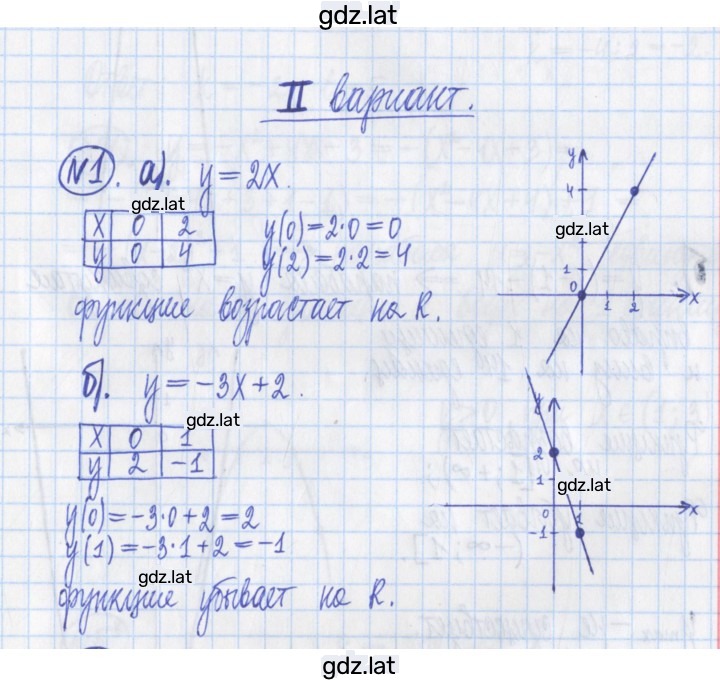 gdz.lat
II вариант.
№1. а). y = 2x.
gdz.lat
x 0 2
y 0 4
y(0) = 2·0 = 0
y(2) = 2·2 = 4
функция возрастает на R.
y
4
gdz.lat
1
0 1 2 x
б). y = -3x + 2.
gdz.lat
x 0 1
y 2 -1
y(0) = -3·0 + 2 = 2
y(1) = -3·1 + 2 = -1
gdz.lat
функция убывает на R.
y
2
1 gdz.lat
0 1 x
-1
gdz.lat